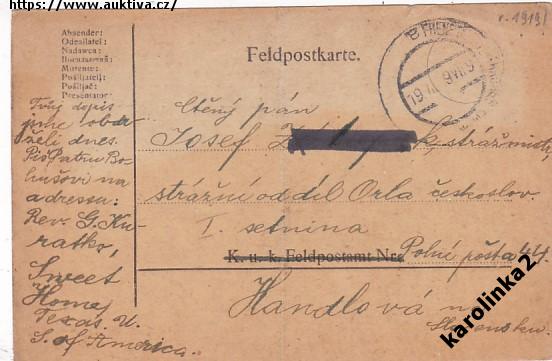 https://www.auktiva.cz/
r. 1919!
Absender:
Odesílatel:
Nadawca:
Mittente:
Pošiljatelj:
Pošiljač:
Presentator:
Feldpostkarte.
19
Tvůj dopis
jsme obdr-
želi dnes.
Piš Patru Bo-
hušovi na
adressu:
Rev. G. Ku-
ratko,
Sweet
Home
Texas. U.
S. of America.
Ctěný pán
Josef
strážní oddíl Orla českoslov.
I. setnina
K. u. k. Feldpostamt Nr. Polní pošta 44.
Handlová na
Slovensku
karolinka2